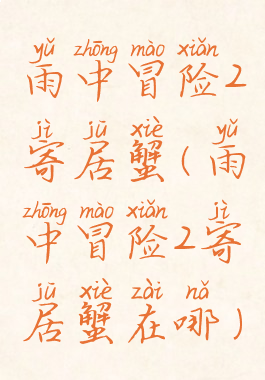 yǔ zhōng mào xiǎn
雨中冒险2
jì jū xiè yǔ
寄居蟹(雨
zhōng mào xiǎn jì
中冒险2寄
jū xiè zài nǎ
居蟹在哪)